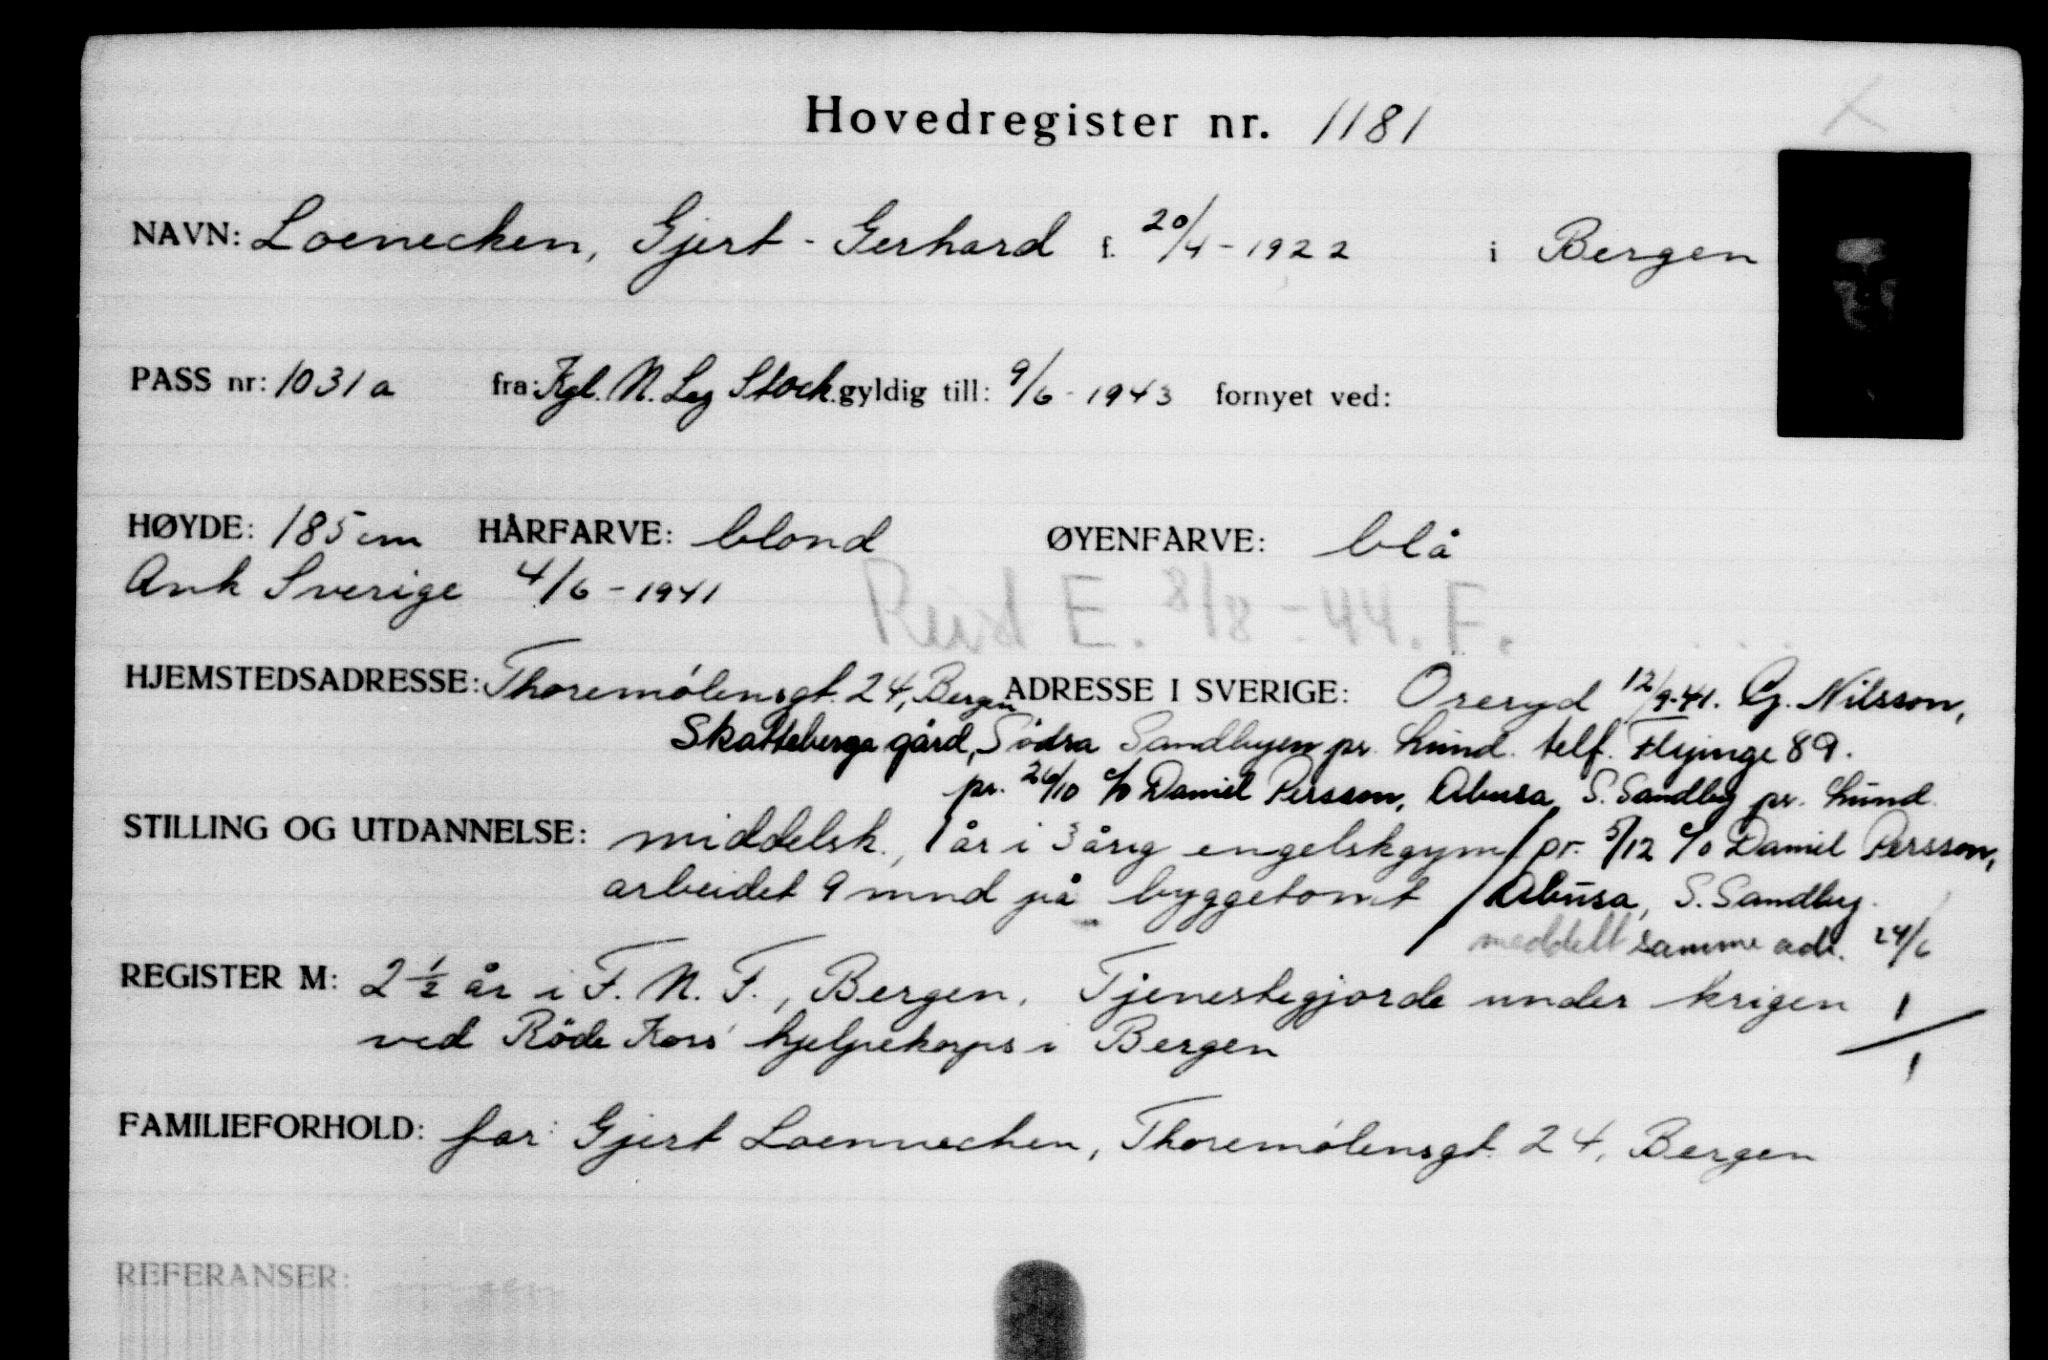 Hovedregister nr. 1181
NAVN: Loenecken, Gjert - Gerhard f. 20/4 - 1922 i Bergen
PASS nr: 1031a fra: Kgl. N. Leg Stock. gyldig till: 9/6 - 1943 fornyet ved:
HØYDE: 185 cm HÅRFARVE: blond ØYENFARVE: blå
Ank Sverige 4/6 - 1941
E. 8/8 - 44. F.
HJEMSTEDSADRESSE: Thoremølensgt. 24, Bergen ADRESSE I SVERIGE: Öreryd 12/9-41. G. Nilsson,
Skatteberga gård, Södra Sandbyen pr. Lund. telf. Flyinge 89.
pr. 26/10 c/o Daniel Persson, Abusa, S. Sandby pr. Lund.
STILLING OG UTDANNELSE: middelsk., 1 år i 3 årig engelskgym / pr. 5/12 c/o Daniel Persson,
arbeidet 9 mnd på byggetomt / Abusa, S. Sandby.
meddelt samme adr. 24/6
REGISTER M: 2 1/2 år i F. N. F., Bergen. Tjenestegjorde under krigen 1/1
ved Röde Kors' hjelpekorps i Bergen
FAMILIEFORHOLD: far: Gjert Loennechen, Thoremølensgt. 24, Bergen
REFERANSER: